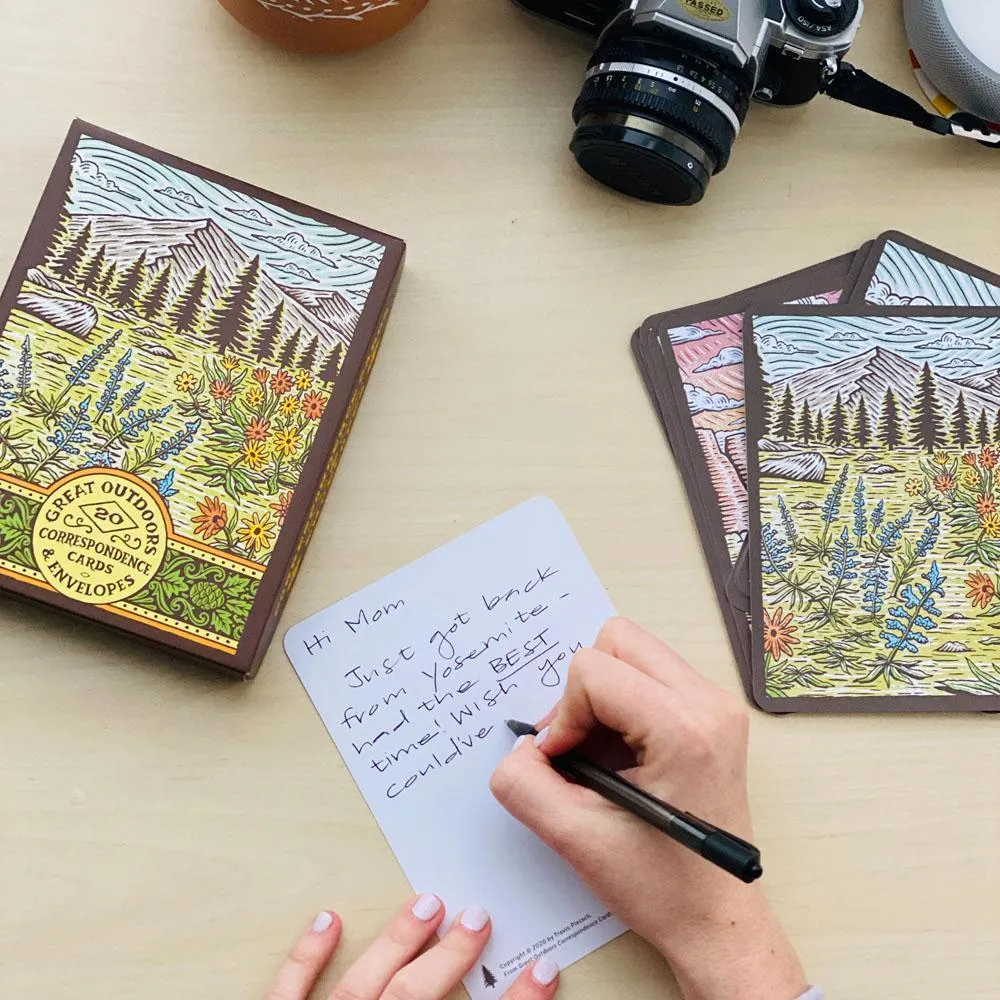 PASSED
ASA/ISO
GREAT OUTDOORS
20
CORRESPONDENCE
CARDS
& ENVELOPES
Hi Mom
Just got back
from Yosemite -
had the BEST
time! Wish you
could've
Copyright © 2020 by Travis Pietsch.
From Great Outdoors Correspondence Cards